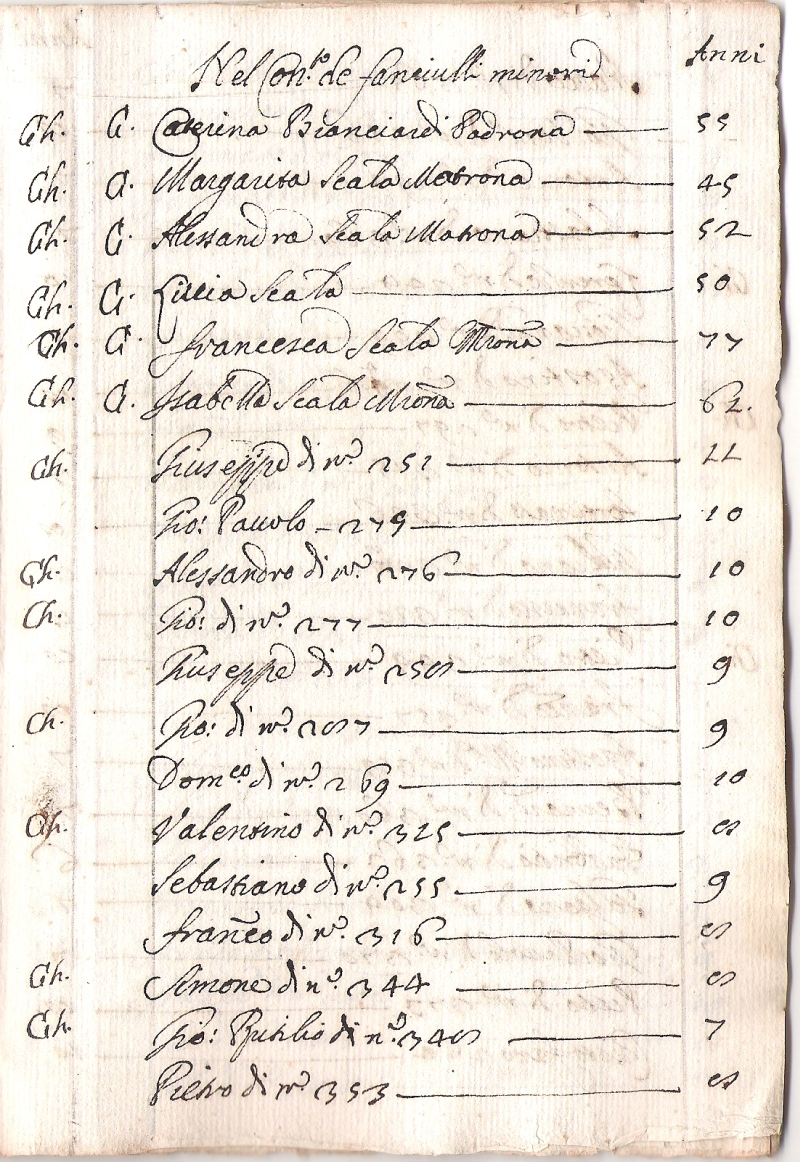 Anni
Nel Con.to de fanciulli minori
Ch. C. Caterina Bianciardi Padrona 55
Ch. C. Margarita Scala Matrona 45
Ch. C. Alessandra Scala Matrona 52
Ch. C. Lucia Scala 50
Ch. C. Francesca Scala Mrona 77
Ch. C. Isabella Scala Mrona 62.
Ch. Giuseppe di n.o 251 11
Gio: Pauolo - 279 10
Ch. Alessandro di n.o 276 10
Ch. Gio: di n.o 277 10
Giuseppe di n.o 258 9
Ch. Gio: di n.o 287 9
Dom.co di n.o 269 10
Ch. Valentino di n.o 315 8
Sebastiano di n.o 255 9
Franco di n.o 316 8
Ch. Simone di n.o 344 8
Ch. Gio: Rutilio di n.o 348 7
Pietro di n.o 353 8